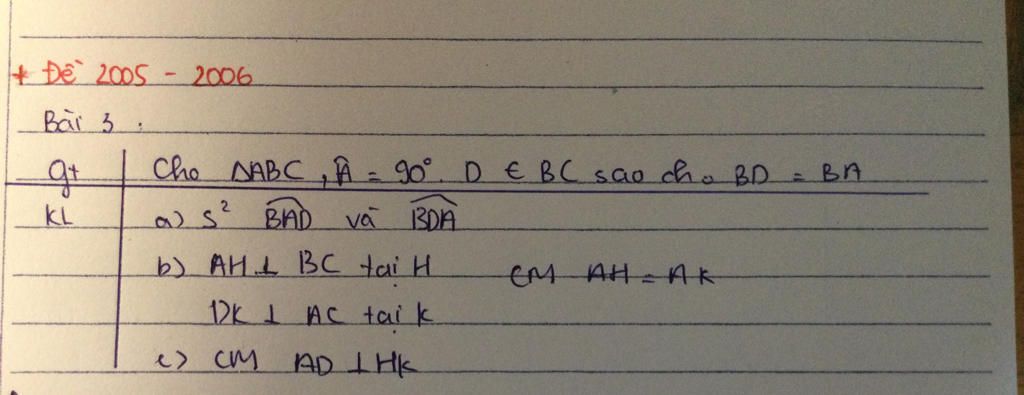 + Đề 2005 - 2006
Bài 3 :
gt Cho ΔABC, Â = 90°. D ∈ BC sao cho BD = BA
KL a) S² BAD và BDA
b) AH ⊥ BC tại H CM AH = AK
DK ⊥ AC tại K
c) CM AD ⊥ HK